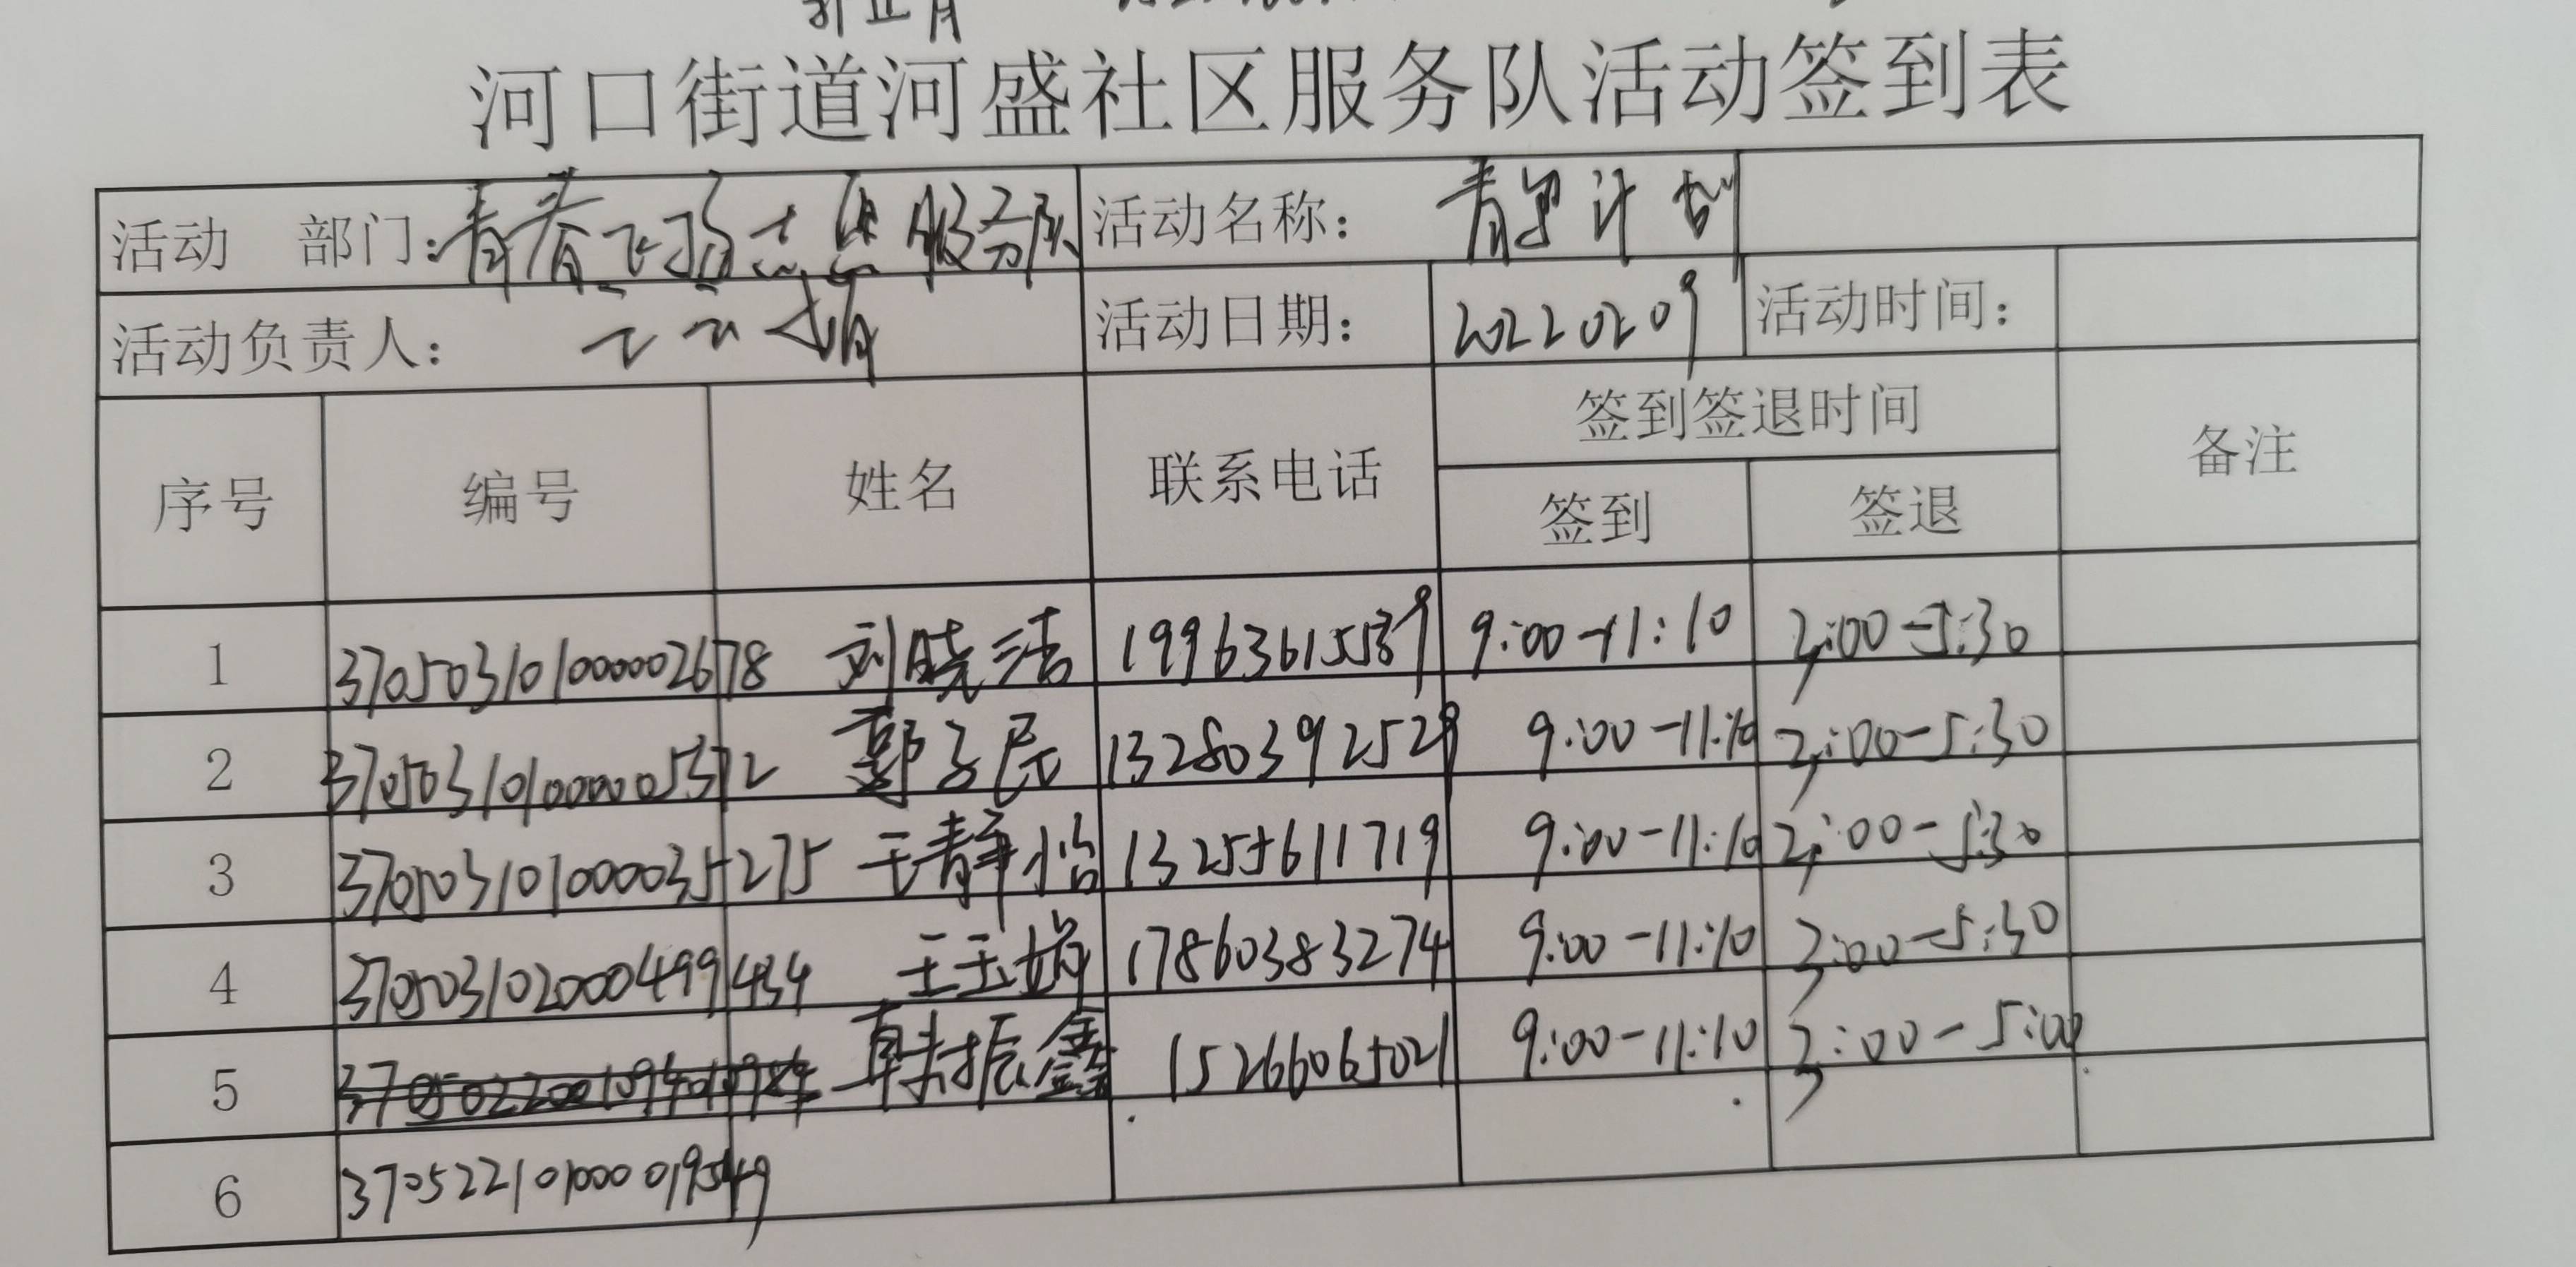 河口街道河盛社区服务队活动签到表
活动 部门：青春飞扬志愿服务队 活动名称： 青鸟计划
活动负责人： 活动日期： 20220209 活动时间：
序号 编号 姓名 联系电话 签到签退时间 备注
签到 签退
1 370503101000002678 刘晓洁 19963615539 9:00-11:10 2:00-5:30
2 370503101000005372 郭子民 13280392529 9:00-11:10 2:00-5:30
3 370503101000035275 王静怡 13255611719 9:00-11:10 2:00-5:30
4 370503102000499434 王玉娇 17860383274 9:00-11:10 2:00-5:30
5 振鑫 15266065021 9:00-11:10 2:00-5:00
6 370522101000019549